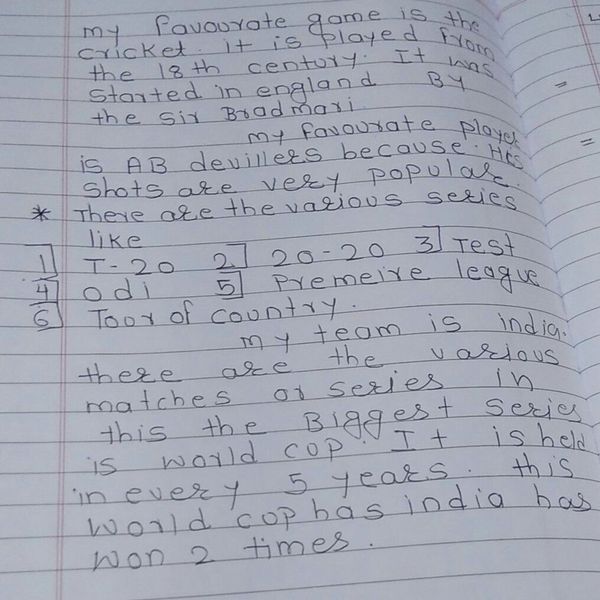 my favourate game is the
cricket. it is played from
the 18th century. It was
started in england BY
the sir Bradmari
my favourate player
is AB devillers because. His
shots are very popular.
* There are the various series
like
1] T-20 2] 20-20 3] Test
4] odi 5] Premeire league
6] Toor of country.
my team is india.
there are the various
matches or series in
this the Biggest series
is world cop. It is held
in every 5 years. this
world cop has india has
won 2 times.